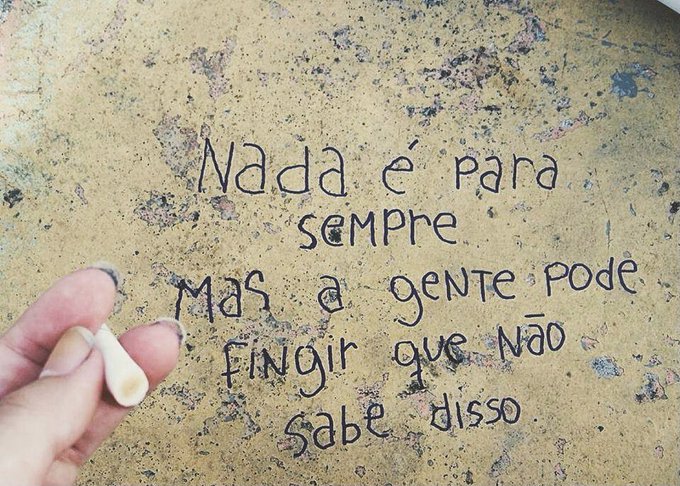 Nada é para
sempre
Mas a gente pode
fingir que não
sabe disso